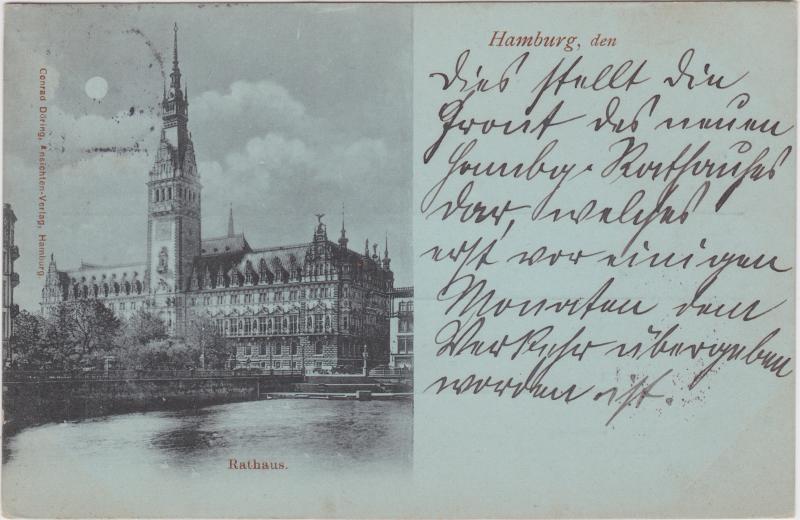 Hamburg, den
Dies stellt die
Front des neuen
Hambg. Rathauses
dar, welches
erst vor einigen
Monaten dem
Verkehr übergeben
worden ist.
Conrad Döring, Ansichten-Verlag, Hamburg.
Rathaus.